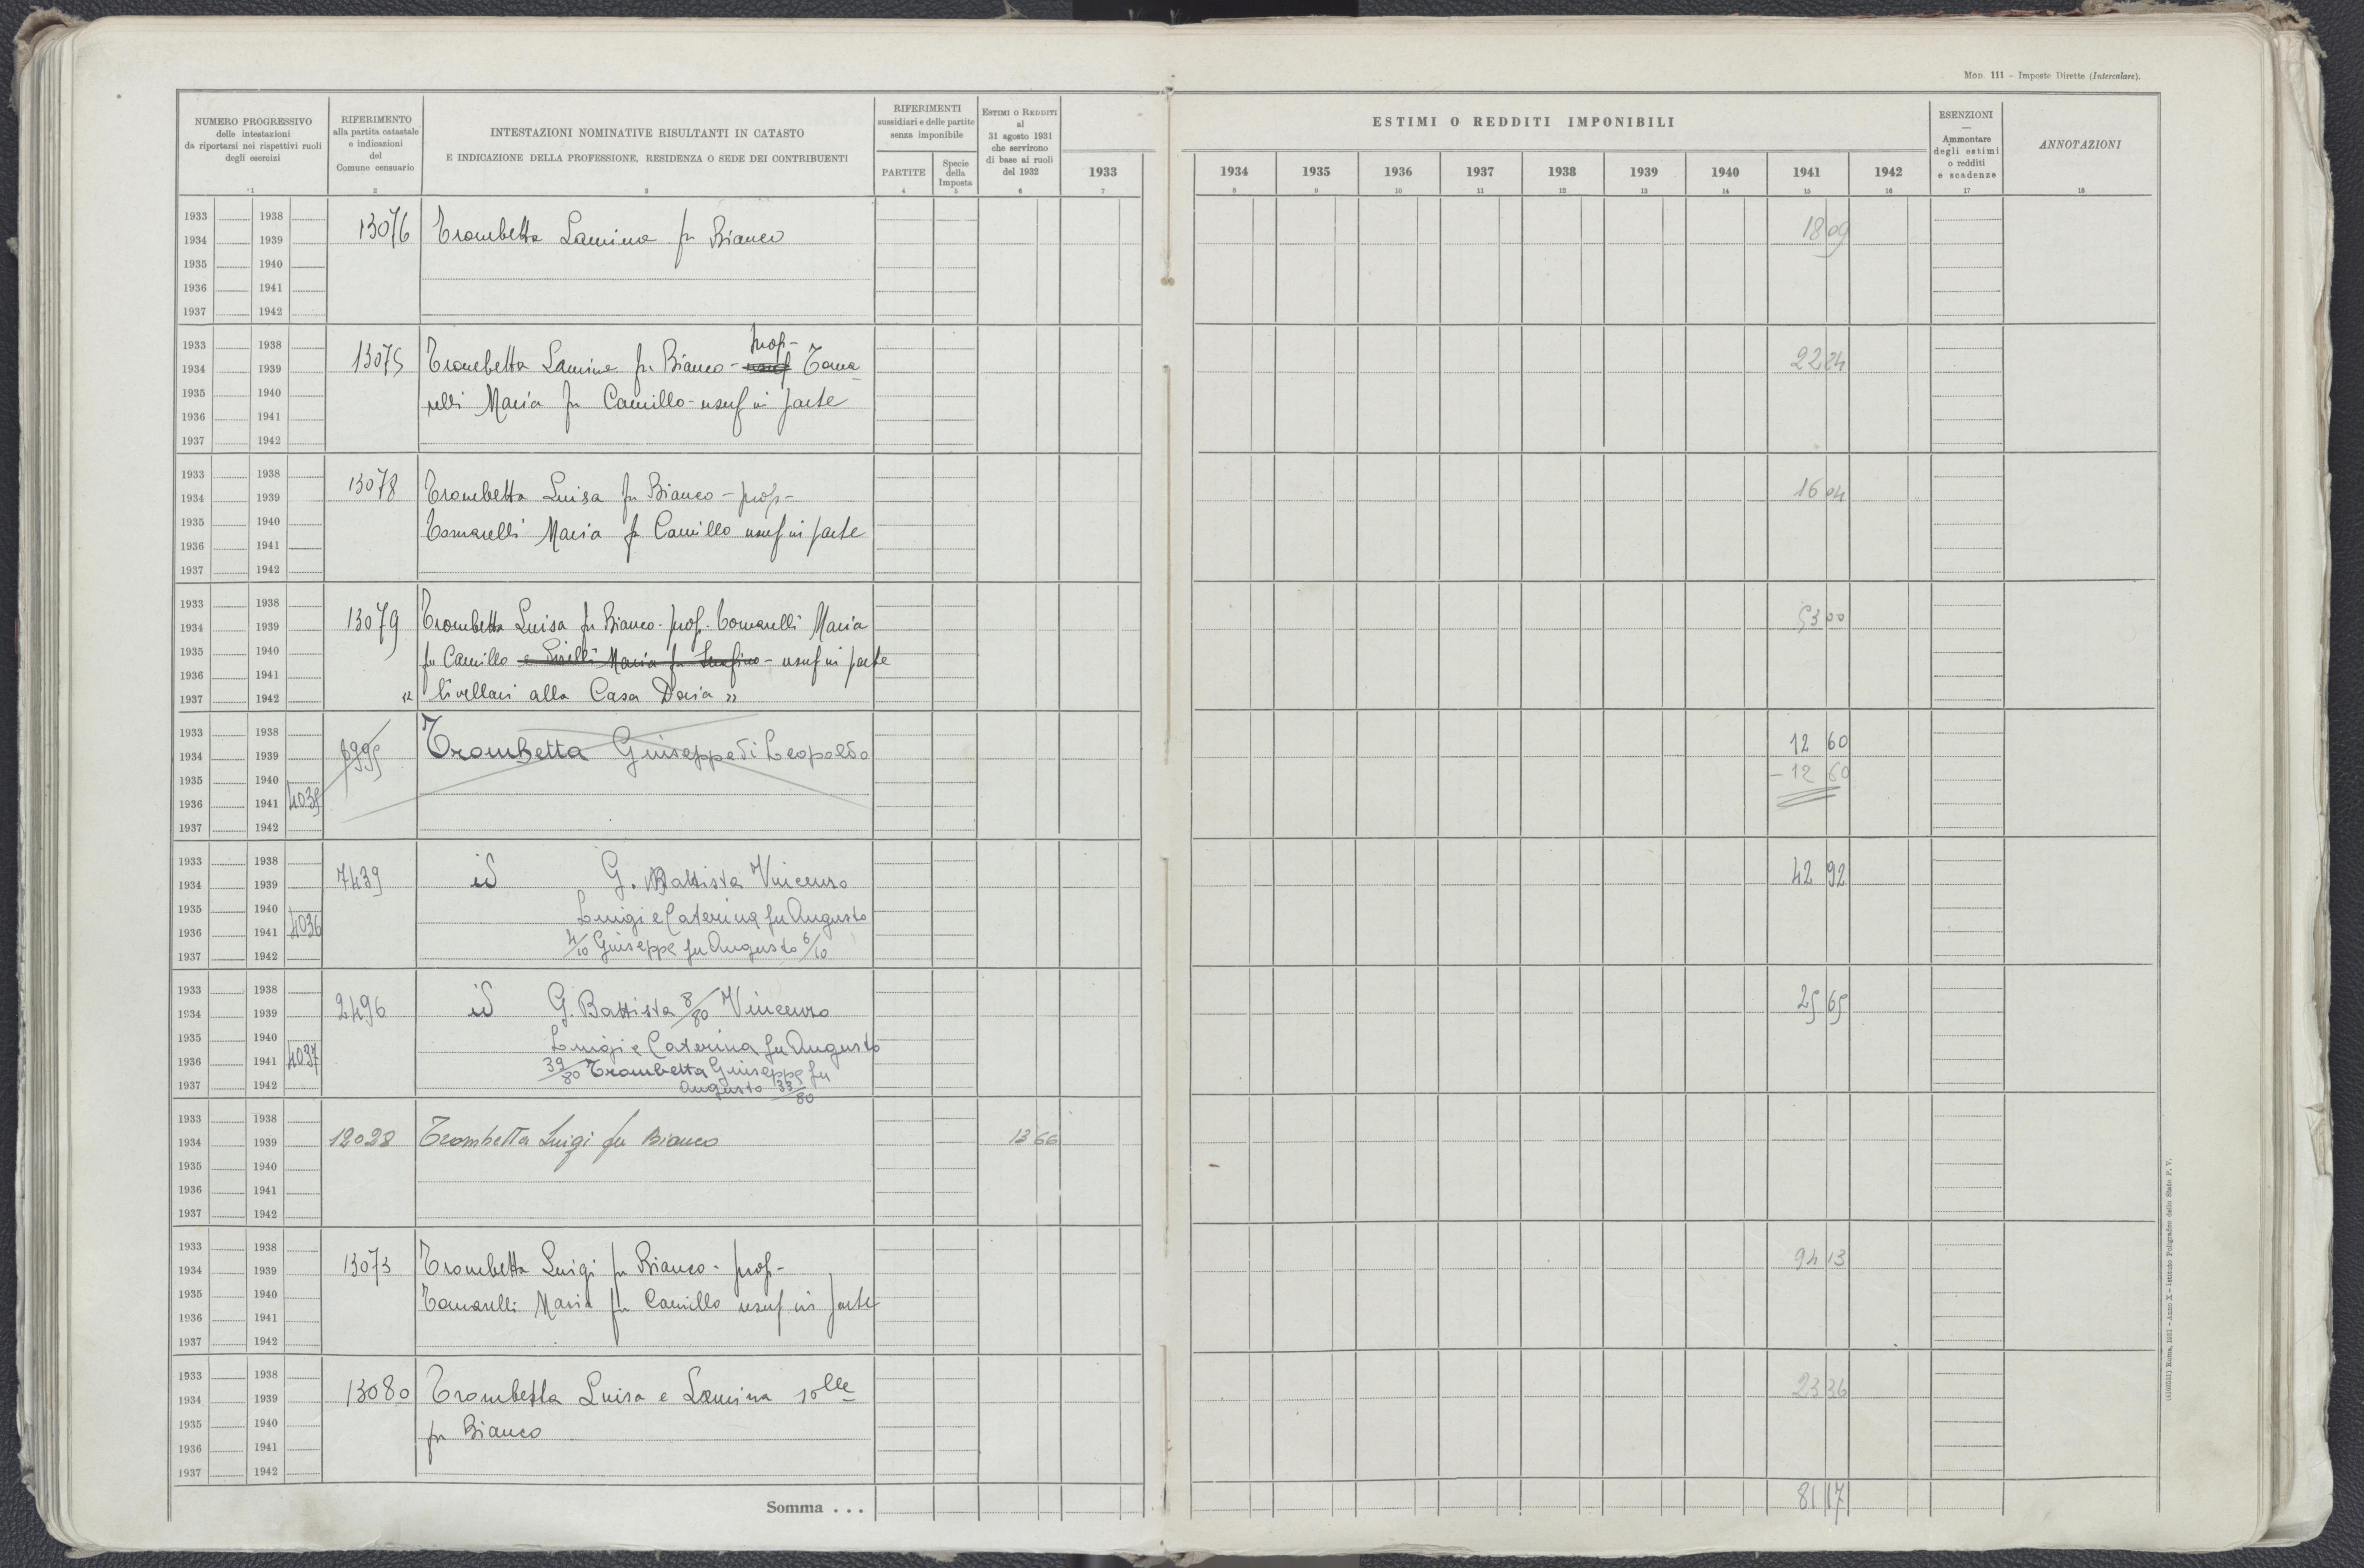 Mod. 111 – Imposte Dirette (Intercalare).
NUMERO PROGRESSIVO
delle intestazioni
da riportarsi nei rispettivi ruoli
degli esercizi
1
RIFERIMENTO
alla partita catastale
e indicazioni
del
Comune censuario
2
INTESTAZIONI NOMINATIVE RISULTANTI IN CATASTO
E INDICAZIONE DELLA PROFESSIONE, RESIDENZA O SEDE DEI CONTRIBUENTI
3
RIFERIMENTI
sussidiari e delle partite
senza imponibile
PARTITE
4
Specie
della
Imposta
5
Estimi o Redditi
al
31 agosto 1931
che servirono
di base ai ruoli
del 1932
6
1933
7
ESTIMI O REDDITI IMPONIBILI
1934 1935 1936 1937 1938 1939 1940 1941 1942
8 9 10 11 12 13 14 15 16
ESENZIONI
—
Ammontare
degli estimi
o redditi
e scadenze
17
ANNOTAZIONI
18
1933 1938
1934 1939 13076 Trombetta Lamina fu Bianco 18 09
1935 1940
1936 1941
1937 1942
1933 1938 prop-
1934 1939 13075 Trombetta Lamina fu Bianco - usuf Toma 22 24
1935 1940 relli Maria fu Camillo - usuf in parte
1936 1941
1937 1942
1933 1938
1934 1939 13078 Trombetta Luisa fu Bianco - prop - 16 04
1935 1940 Tomarelli Maria fu Camillo usuf in parte
1936 1941
1937 1942
1933 1938
1934 1939 13079 Trombetta Luisa fu Bianco - prop. Tomarelli Maria 53 00
1935 1940 fu Camillo e Maria fu Serafino - usuf in parte
1936 1941
1937 1942 “ livellari alla Casa Doria ”
1933 1938
1934 1939 6995 Trombetta Giuseppe di Leopoldo 12 60
1935 1940 - 12 60
1936 1941 4035
1937 1942
1933 1938
1934 1939 7439 id G. Battista Vincenzo 42 92
1935 1940 Luigi e Caterina fu Augusto
1936 1941 4036
1937 1942 4/10 Giuseppe fu Augusto 6/10
1933 1938
1934 1939 2496 id G. Battista 8/80 Vincenzo 25 65
1935 1940 Luigi e Caterina fu Augusto
1936 1941 4037 39/80 Trombetta Giuseppe fu
1937 1942 Augusto 33/80
1933 1938
1934 1939 12028 Trombetta Luigi fu Bianco 13 66
1935 1940
1936 1941
1937 1942
1933 1938
1934 1939 13073 Trombetta Luigi fu Bianco - prop - 94 13
1935 1940 Tomarelli Maria fu Camillo usuf in parte
1936 1941
1937 1942
1933 1938
1934 1939 13080 Trombetta Luisa e Lamina solle 23 36
1935 1940 fu Bianco
1936 1941
1937 1942
Somma . . . 81 17
Roma, 1931 – Anno X – Istituto Poligrafico dello Stato P. V.